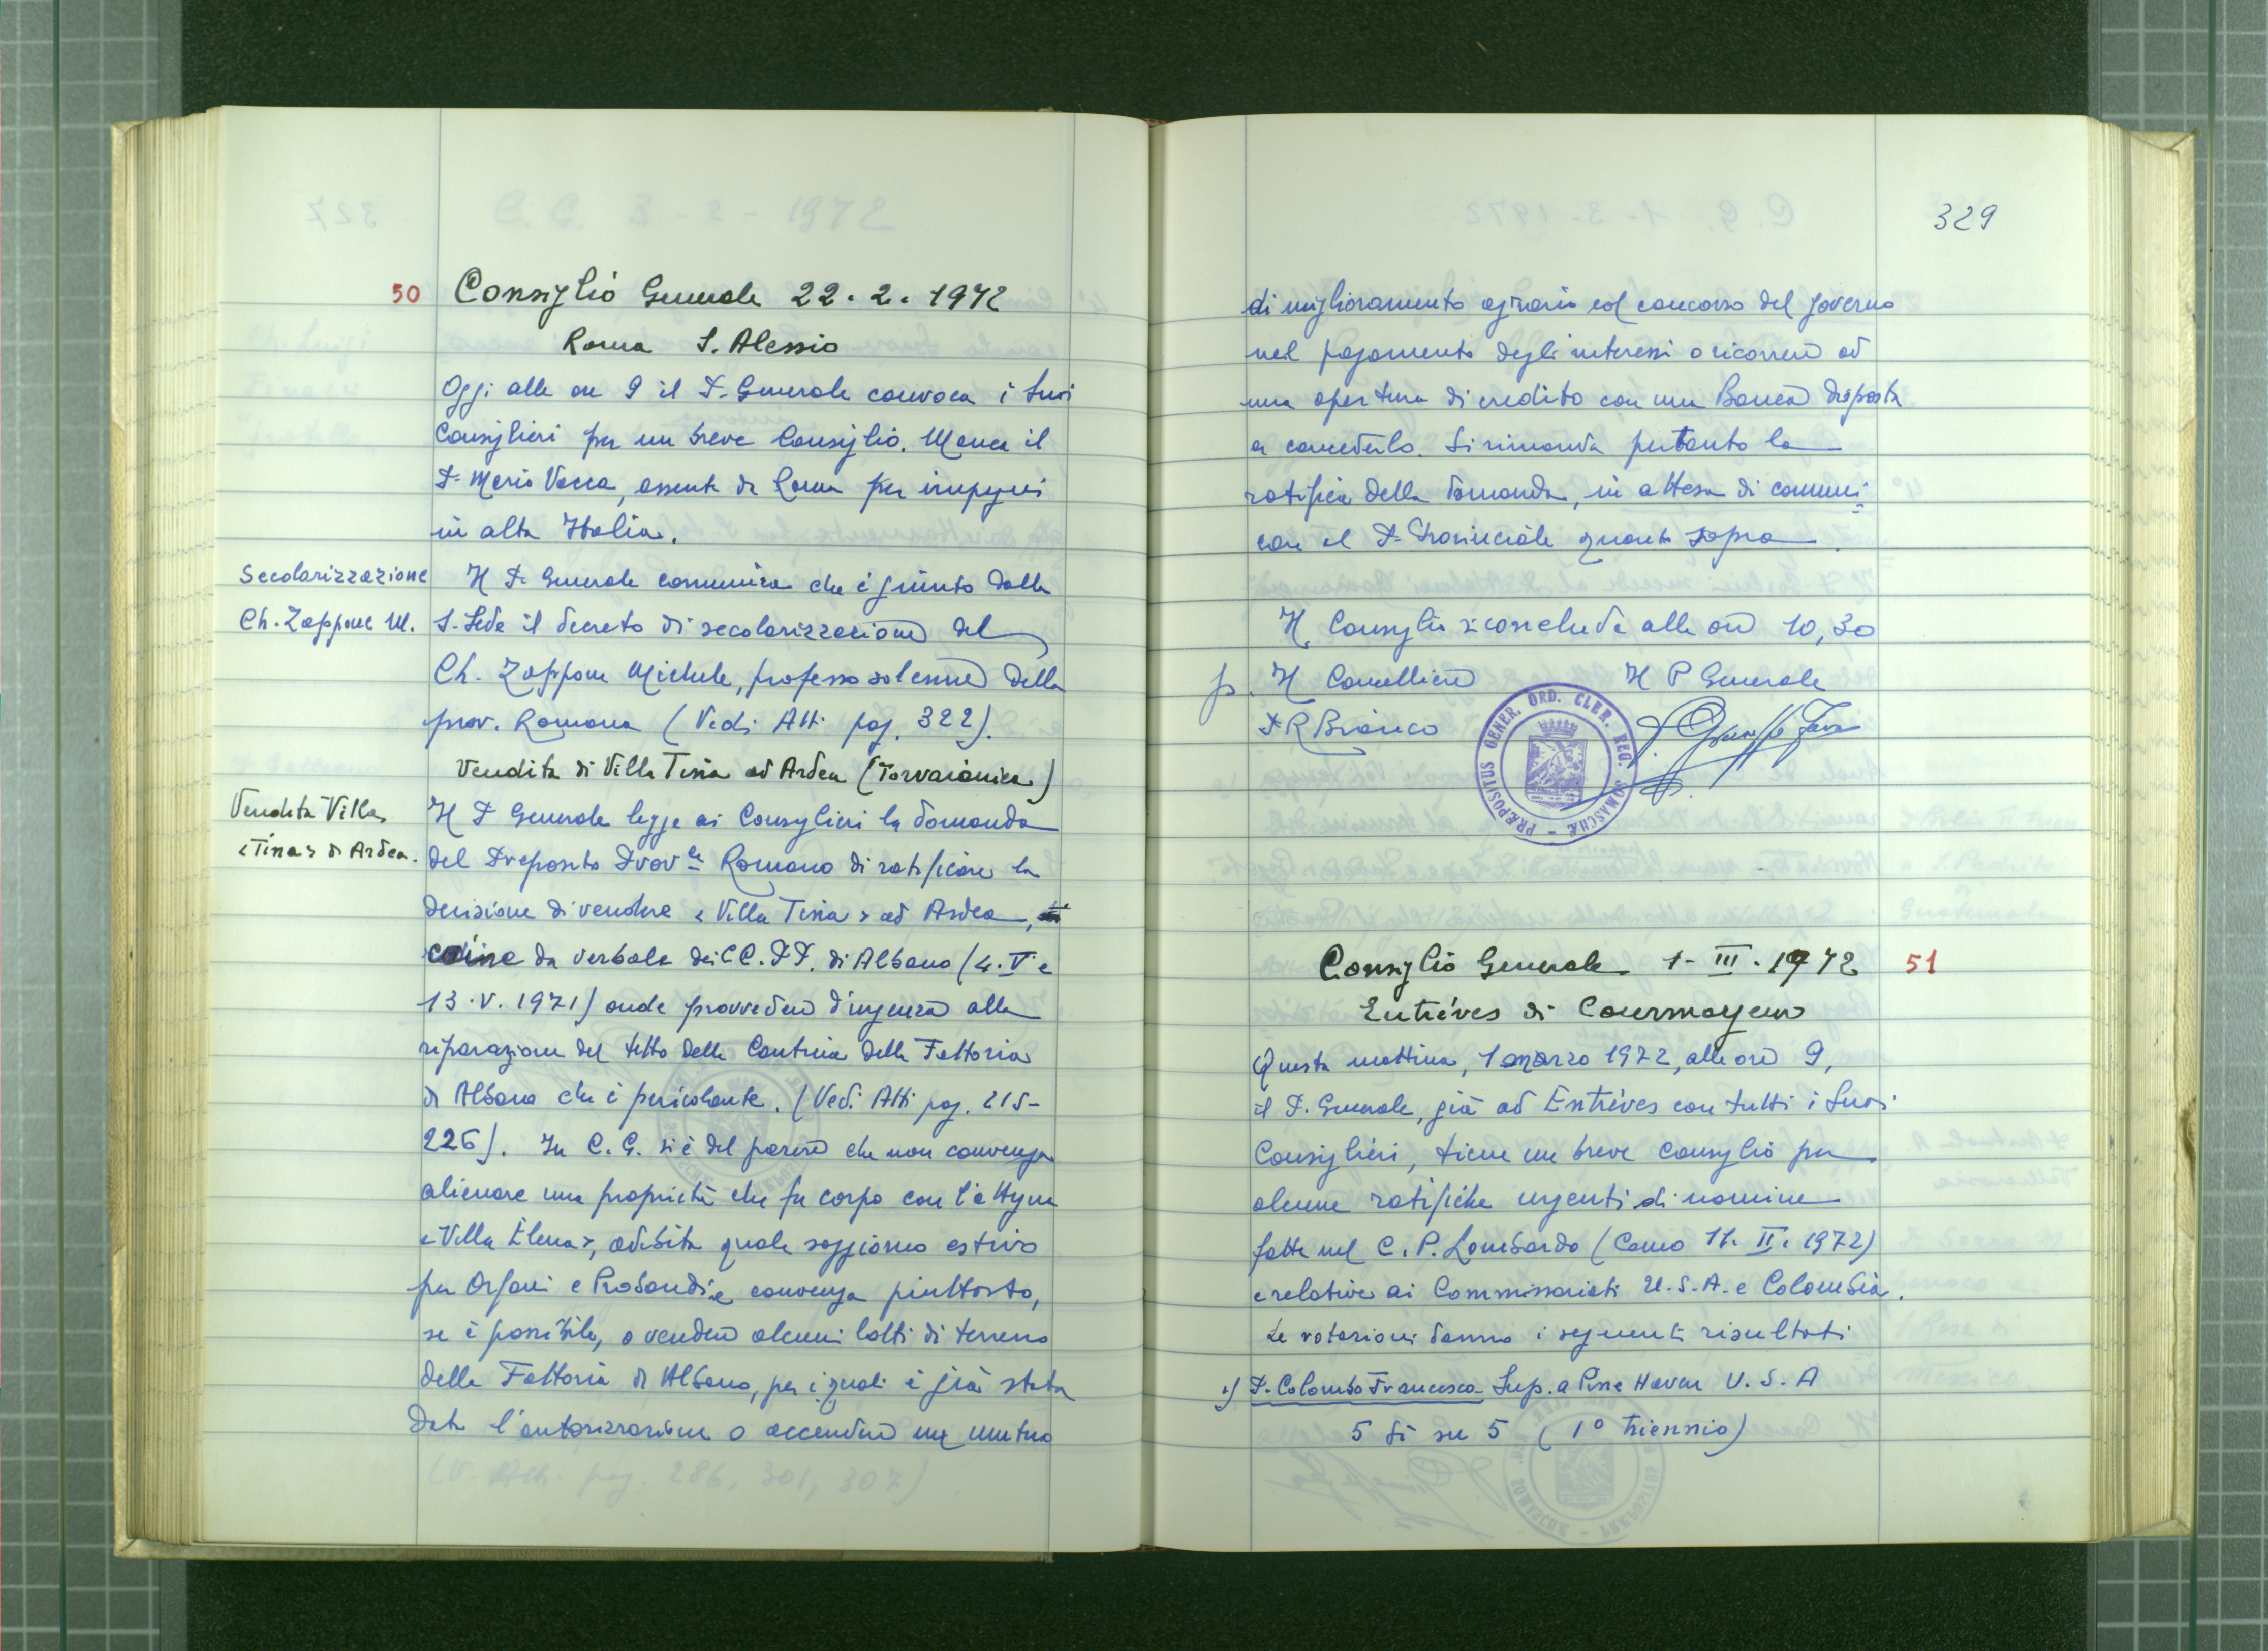 50 Consiglio Generale 22.2.1972
Roma S. Alessio
Oggi alle ore 9 il P. Generale convoca i suoi
Consiglieri per un breve Consiglio. Manca il
P. Mario Vacca, assente da Roma per impegni
in alta Italia.
Secolarizzazione
Ch. Zappone M.
Il P. Generale comunica che è giunto dalla
S. Sede il decreto di secolarizzazione del
Ch. Zappone Michele, professo solenne della
prov. Romana (Vedi Atti pag. 322).
Vendita di Villa Tina ad Ardea (Torvaianica)
Vendita Villa
«Tina» di Ardea.
Il P. Generale legge ai Consiglieri la domanda
del Preposito Prov.le Romano di ratificare la
decisione di vendere «Villa Tina» ad Ardea,
come da verbale dei CC.PP. di Albano (4.V e
13.V.1971) onde provvedere d'urgenza alla
riparazione del tetto della Cantina della Fattoria
di Albano che è pericolante. (Vedi Atti pag. 215-
226). In C.G. si è del parere che non convenga
alienare una proprietà che fa corpo con l'attigua
«Villa Elena», adibita quale soggiorno estivo
per Orfani e Probandi e convenga piuttosto,
se è possibile, o vendere alcuni lotti di terreno
della Fattoria di Albano, per i quali è già stata
data l'autorizzazione o accendere un mutuo
(V. Atti pag. 286, 301, 307)
329
di miglioramento agrario col concorso del governo
nel pagamento degli interessi o ricorrere ad
una apertura di credito con una Banca disposta
a concederlo. Si rimanda pertanto la
ratifica della domanda, in attesa di comuni
care al P. Provinciale quanto sopra.
Il Consiglio si conclude alle ore 10,30
p. Il Cancelliere Il P Generale
P R Bianco P. Giuseppe Fava
PRÆPOSITUS GENER. ORD. CLER. REG. SOMASCHÆ
Consiglio Generale 1-III.1972 51
Entrèves di Courmayeur
Questa mattina, 1 marzo 1972, alle ore 9,
il P. Generale, già ad Entrèves con tutti i suoi
Consiglieri, tiene un breve consiglio per
alcune ratifiche urgenti di nomine
fatte nel C.P. Lombardo (Como 11.II.1972)
e relative ai Commissariati U.S.A. e Colombia.
Le votazioni danno i seguenti risultati
1) P. Colombo Francesco - Sup. a Pine Haven U.S.A
5 sì su 5 (1º triennio)